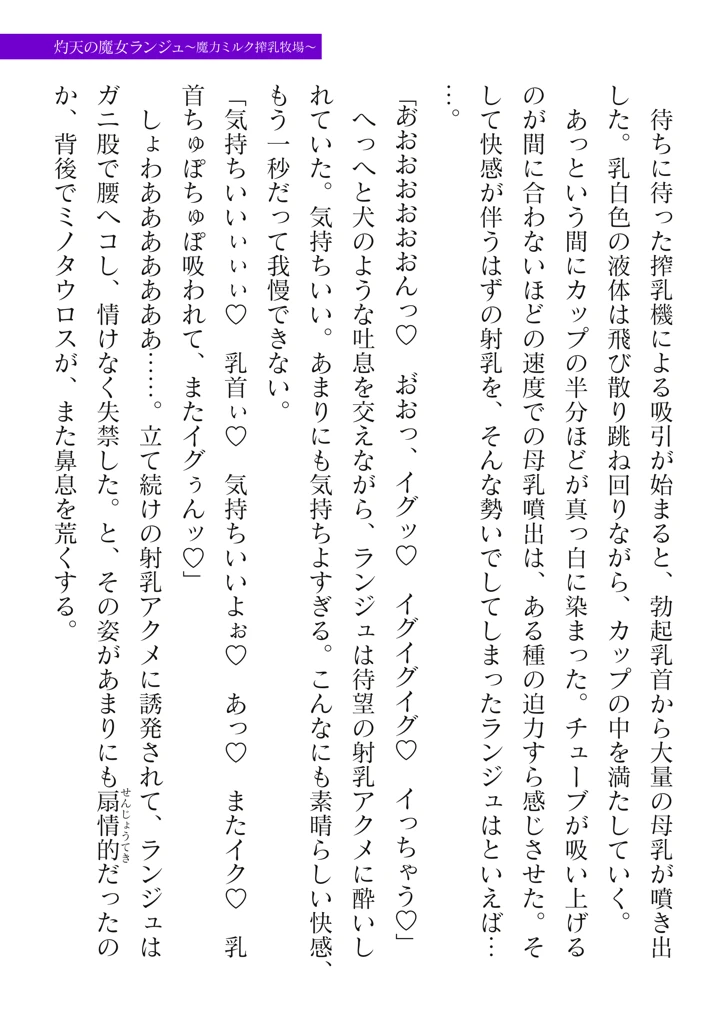 灼天の魔女ランジュ～魔力ミルク搾乳牧場～
　待ちに待った搾乳機による吸引が始まると、勃起乳首から大量の母乳が噴き出
した。乳白色の液体は飛び散り跳ね回りながら、カップの中を満たしていく。
　あっという間にカップの半分ほどが真っ白に染まった。チューブが吸い上げる
のが間に合わないほどの速度での母乳噴出は、ある種の迫力すら感じさせた。そ
して快感が伴うはずの射乳を、そんな勢いでしてしまったランジュはといえば…
…。
「あ゙おおおおおおおんっ♡　お゙おっ、イグッ♡　イグイグイグ♡　イっちゃう♡」
　へっへと犬のような吐息を交えながら、ランジュは待望の射乳アクメに酔いし
れていた。気持ちいい。あまりにも気持ちよすぎる。こんなにも素晴らしい快感、
もう一秒だって我慢できない。
「気持ちいいぃぃぃ♡　乳首ぃ♡　気持ちいいよぉ♡　あっ♡　またイク♡　乳
首ちゅぽちゅぽ吸われて、またイグぅんッ♡」
　しょわああああああああ……。立て続けの射乳アクメに誘発されて、ランジュは
ガニ股で腰へコし、情けなく失禁した。と、その姿があまりにも扇情的だったの
せんじょうてき
か、背後でミノタウロスが、また鼻息を荒くする。